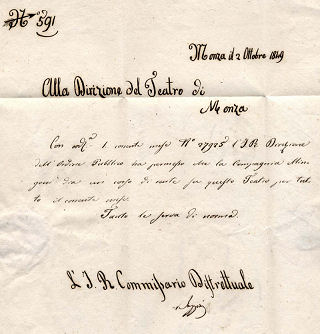 N° 591
Monza il 2 Ottobre 1849
Alla Direzione del Teatro di
Monza
Con 1 corrente mese N° 27925 l'I. R. Direzione
dell'Ordine Pubblico ha permesso che la Compagnia
dia un corso di recite su questo Teatro per tut-
to il corrente mese.
Tanto le serva di norma.
L'I. R. Commissario Distrettuale